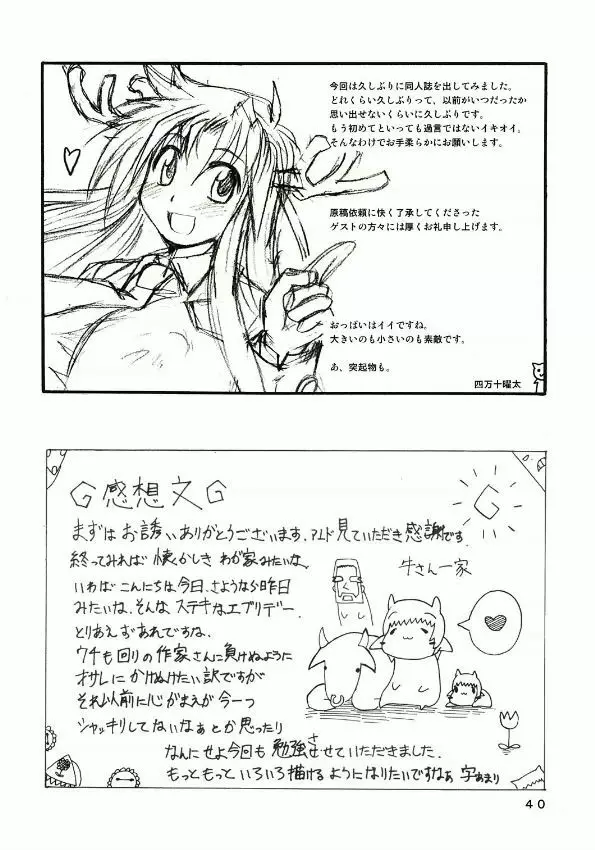 今回は久しぶりに同人誌を出してみました。
どれくらい久しぶりって、以前がいつだったか
思い出せないくらいに久しぶりです。
もう初めてといっても過言ではないイキオイ。
そんなわけでお手柔らかにお願いします。
原稿依頼に快く了承してくださった
ゲストの方々には厚くお礼申し上げます。
おっぱいはイイですね。
大きいのも小さいのも素敵です。
あ、突起物も。
四万十曜太
G感想文G
まずはお誘いありがとうございます。見ていただき感謝です
終ってみれば懐かしき わが家みたいな、
いわば こんにちは今日、さようなら昨日
みたいな、そんな、ステキなエブリデー。
とりあえずあれですね、
ウチも回りの作家さんに負けぬように
オサレに かけぬけたい訳ですが
それ以前に心がまえが今一つ
シャッキリしてないなぁとか思ったり
なんにせよ今回も勉強させていただきました。
もっともっと いろいろ描けるようになりたいですなぁ 字あまり
牛さん一家
G
40